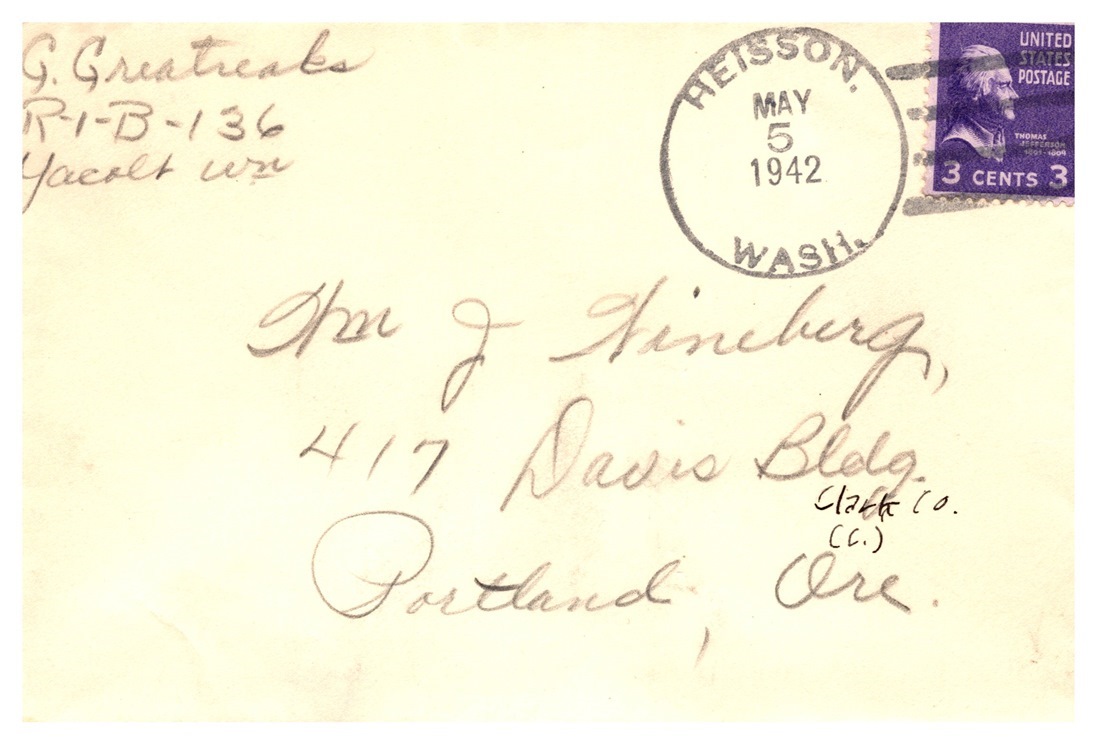 G. Greatreaks
R-1-B-136
Yacolt Wn
HEISSON.
MAY
5
1942
WASH.
UNITED
STATES
POSTAGE
THOMAS
JEFFERSON
1801-1809
3 CENTS 3
Wm J Wineberg,
417 Davis Bldg.
Clark Co.
(C.)
Portland, Ore.